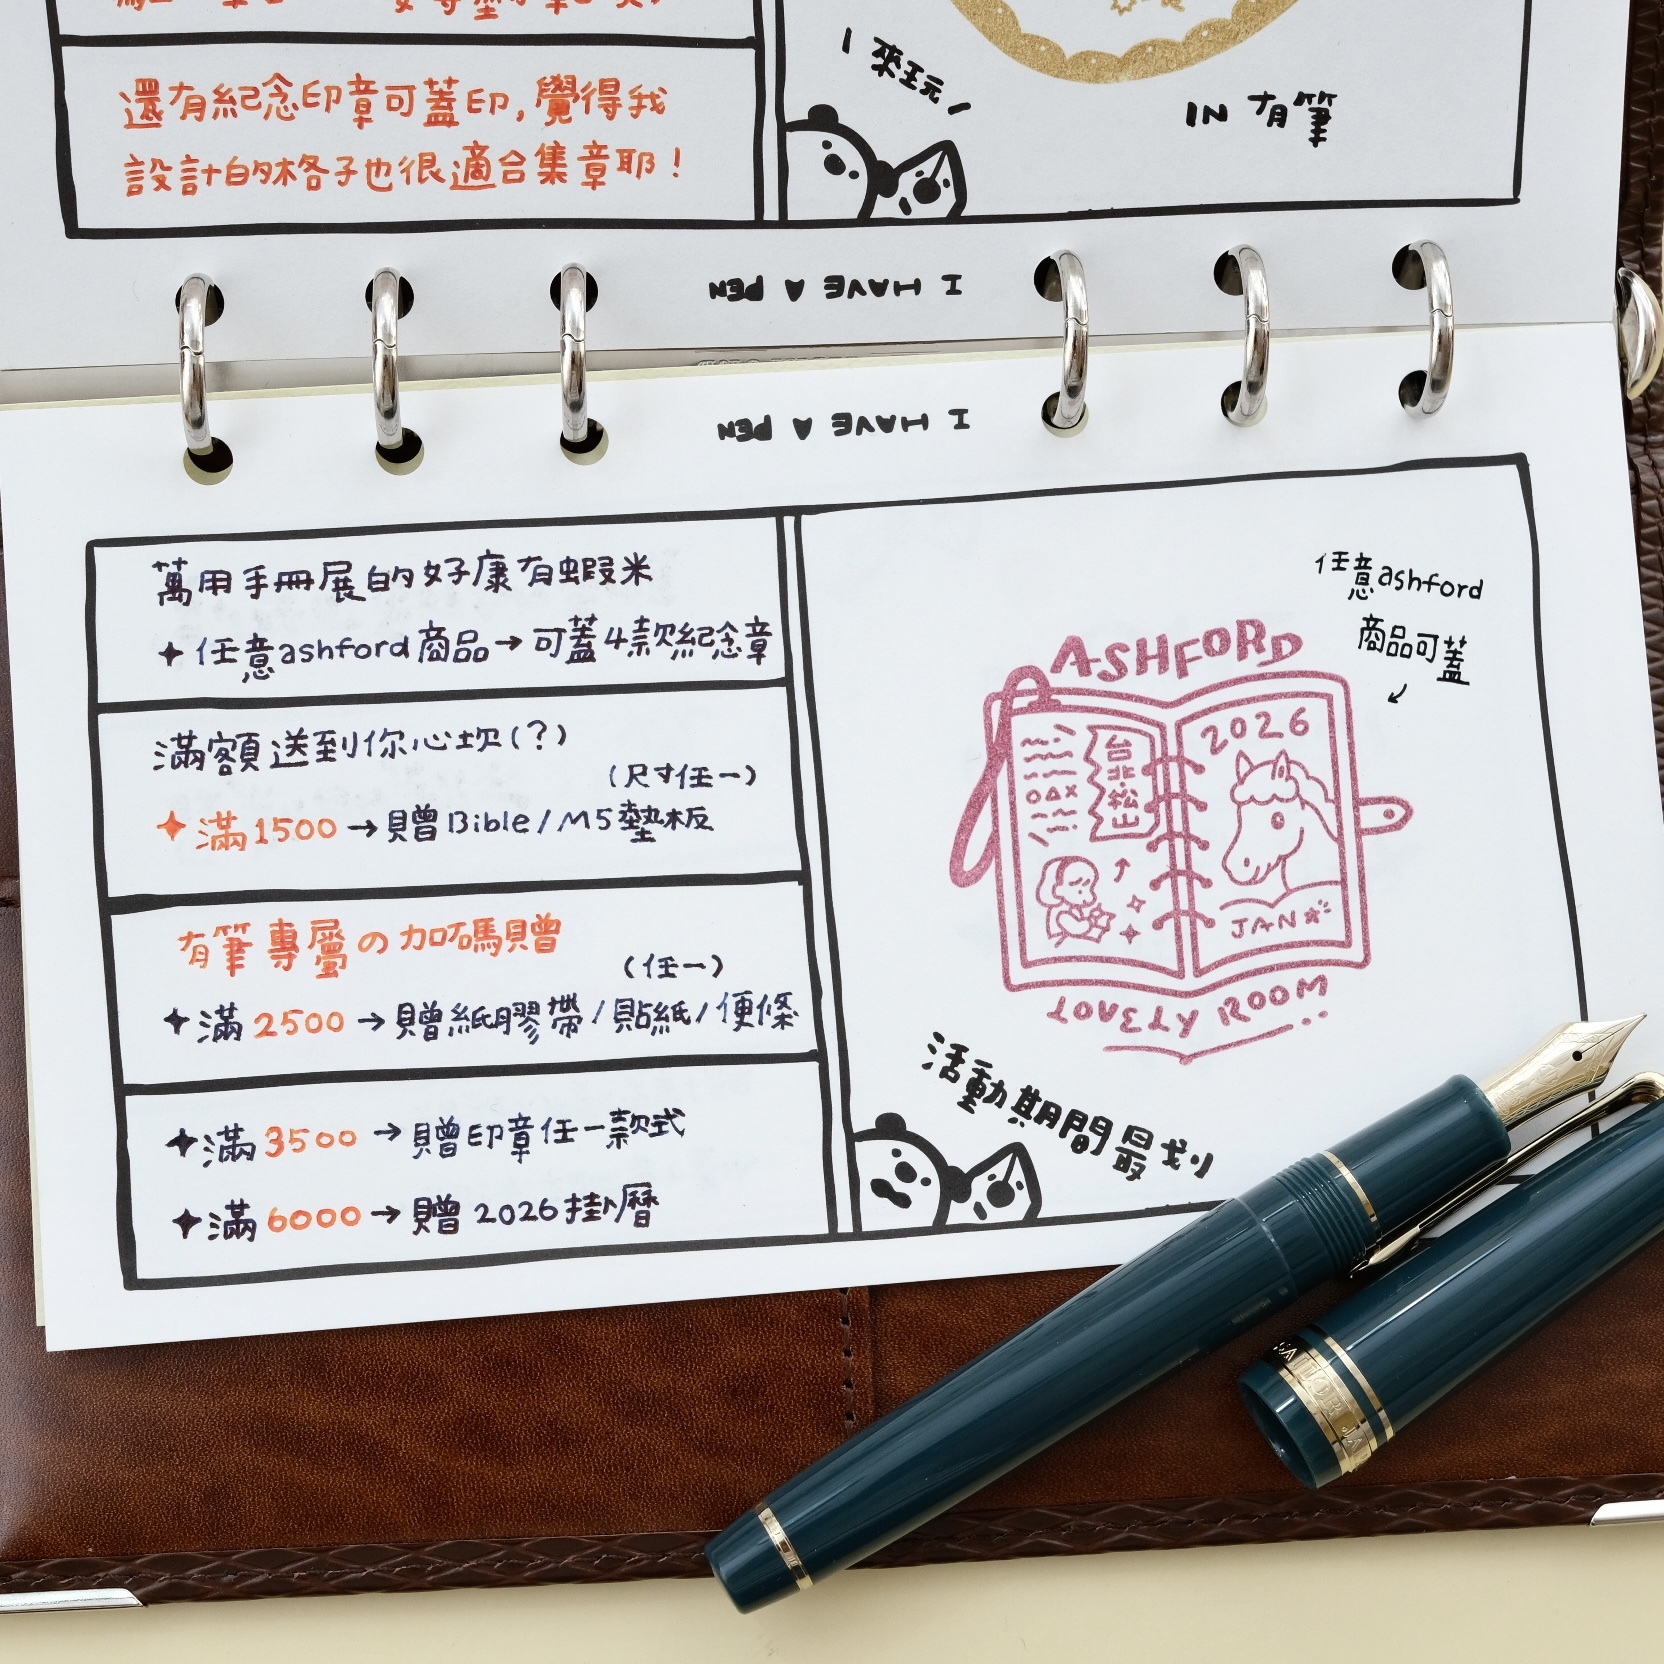 還有紀念印章可蓋印，覺得我
設計的格子也很適合集章耶！
來玩
IN 有筆
I HAVE A PEN
I HAVE A PEN
萬用手冊展的好康有蝦米
任意ashford商品→可蓋4款紀念章
滿額送到你心坎(?)
(尺寸任一)
滿1500→贈Bible/M5墊板
有筆專屬の加碼贈
(任一)
滿2500→贈紙膠帶/貼紙/便條
滿3500→贈印章任一款式
滿6000→贈2026掛曆
任意ashford
商品可蓋
ASHFORD
台北·松山
2026
JAN
LOVELY ROOM
活動期間最划